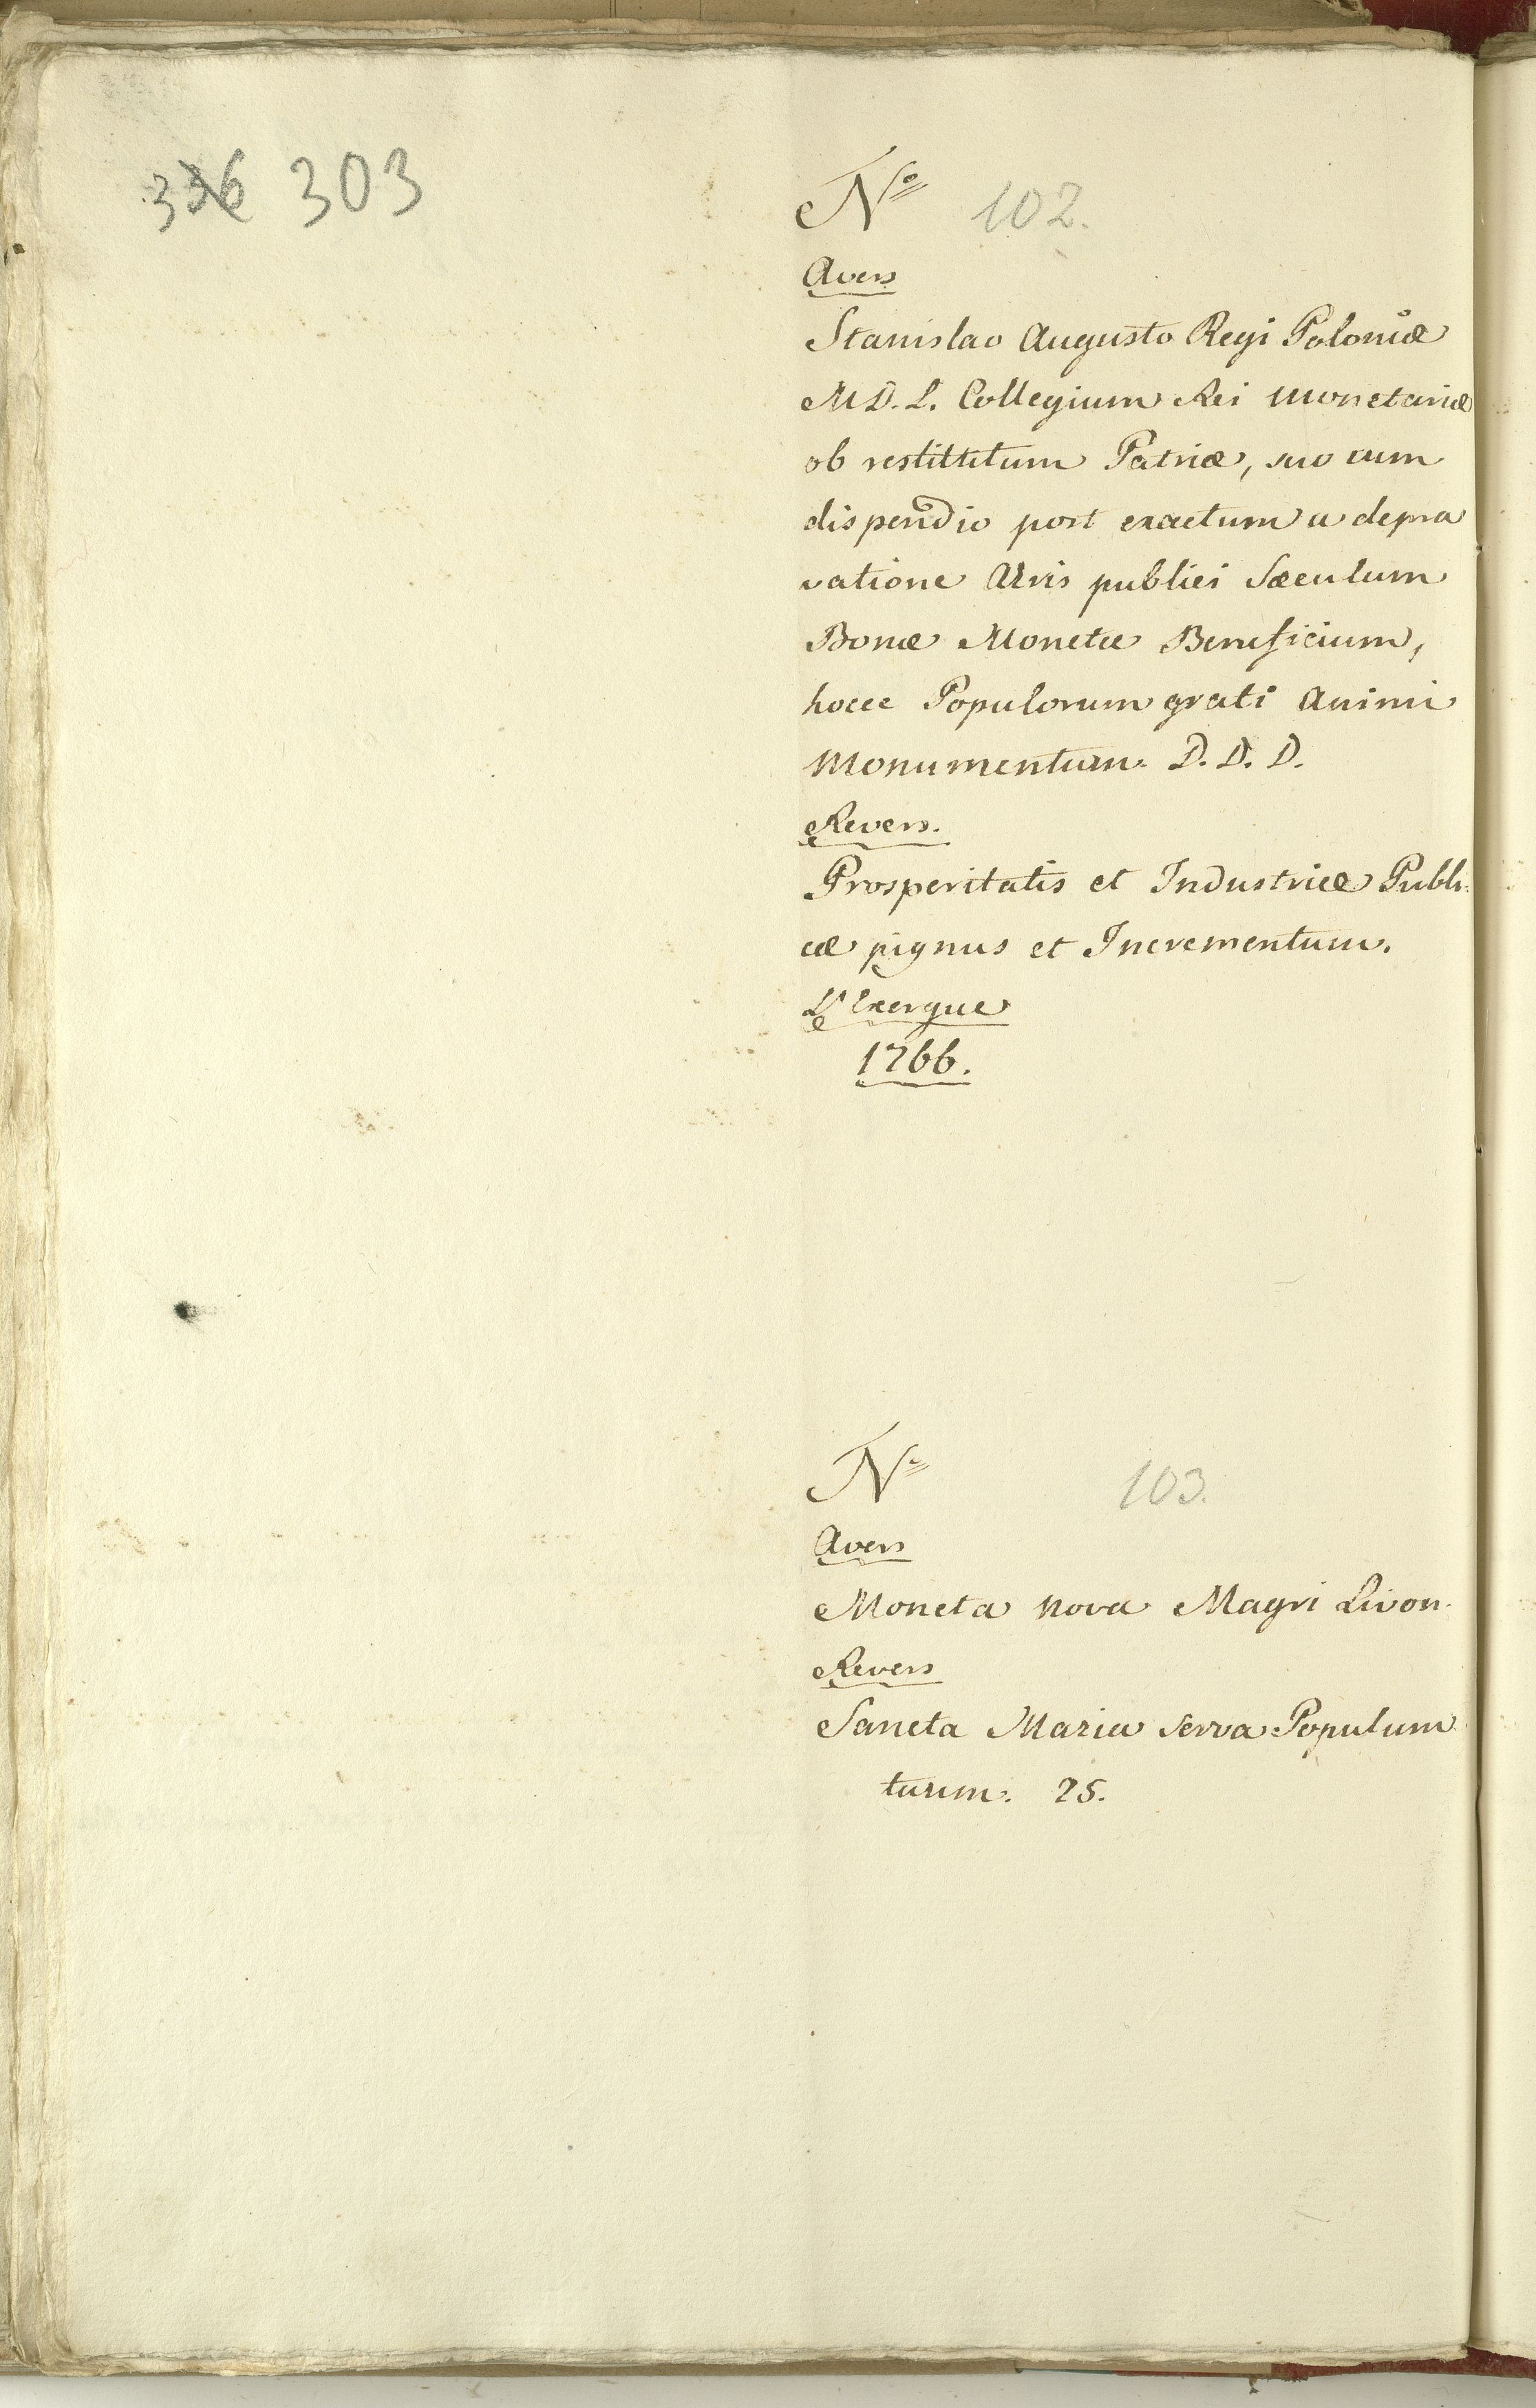 336 303
No 102.
Avers
Stanislao Augusto Regi Poloniæ
M D. L. Collegium Rei Monetariæ
ob restittitum Patriæ, suo cum
dispendio post exactum a depra
vatione Æris publici Sæculum
Bonæ Monetæ Beneficium,
hocce Populorum grati Animi
Monumentum. D. D. D.
Revers.
Prosperitatis et Industriæ Publi:
cæ pignus et Incrementum.
L'Exergue
1766.
No 103.
Avers
Moneta Nova Magri Livon.
Revers
Sancta Maria Serva Populum
tuum. 25.